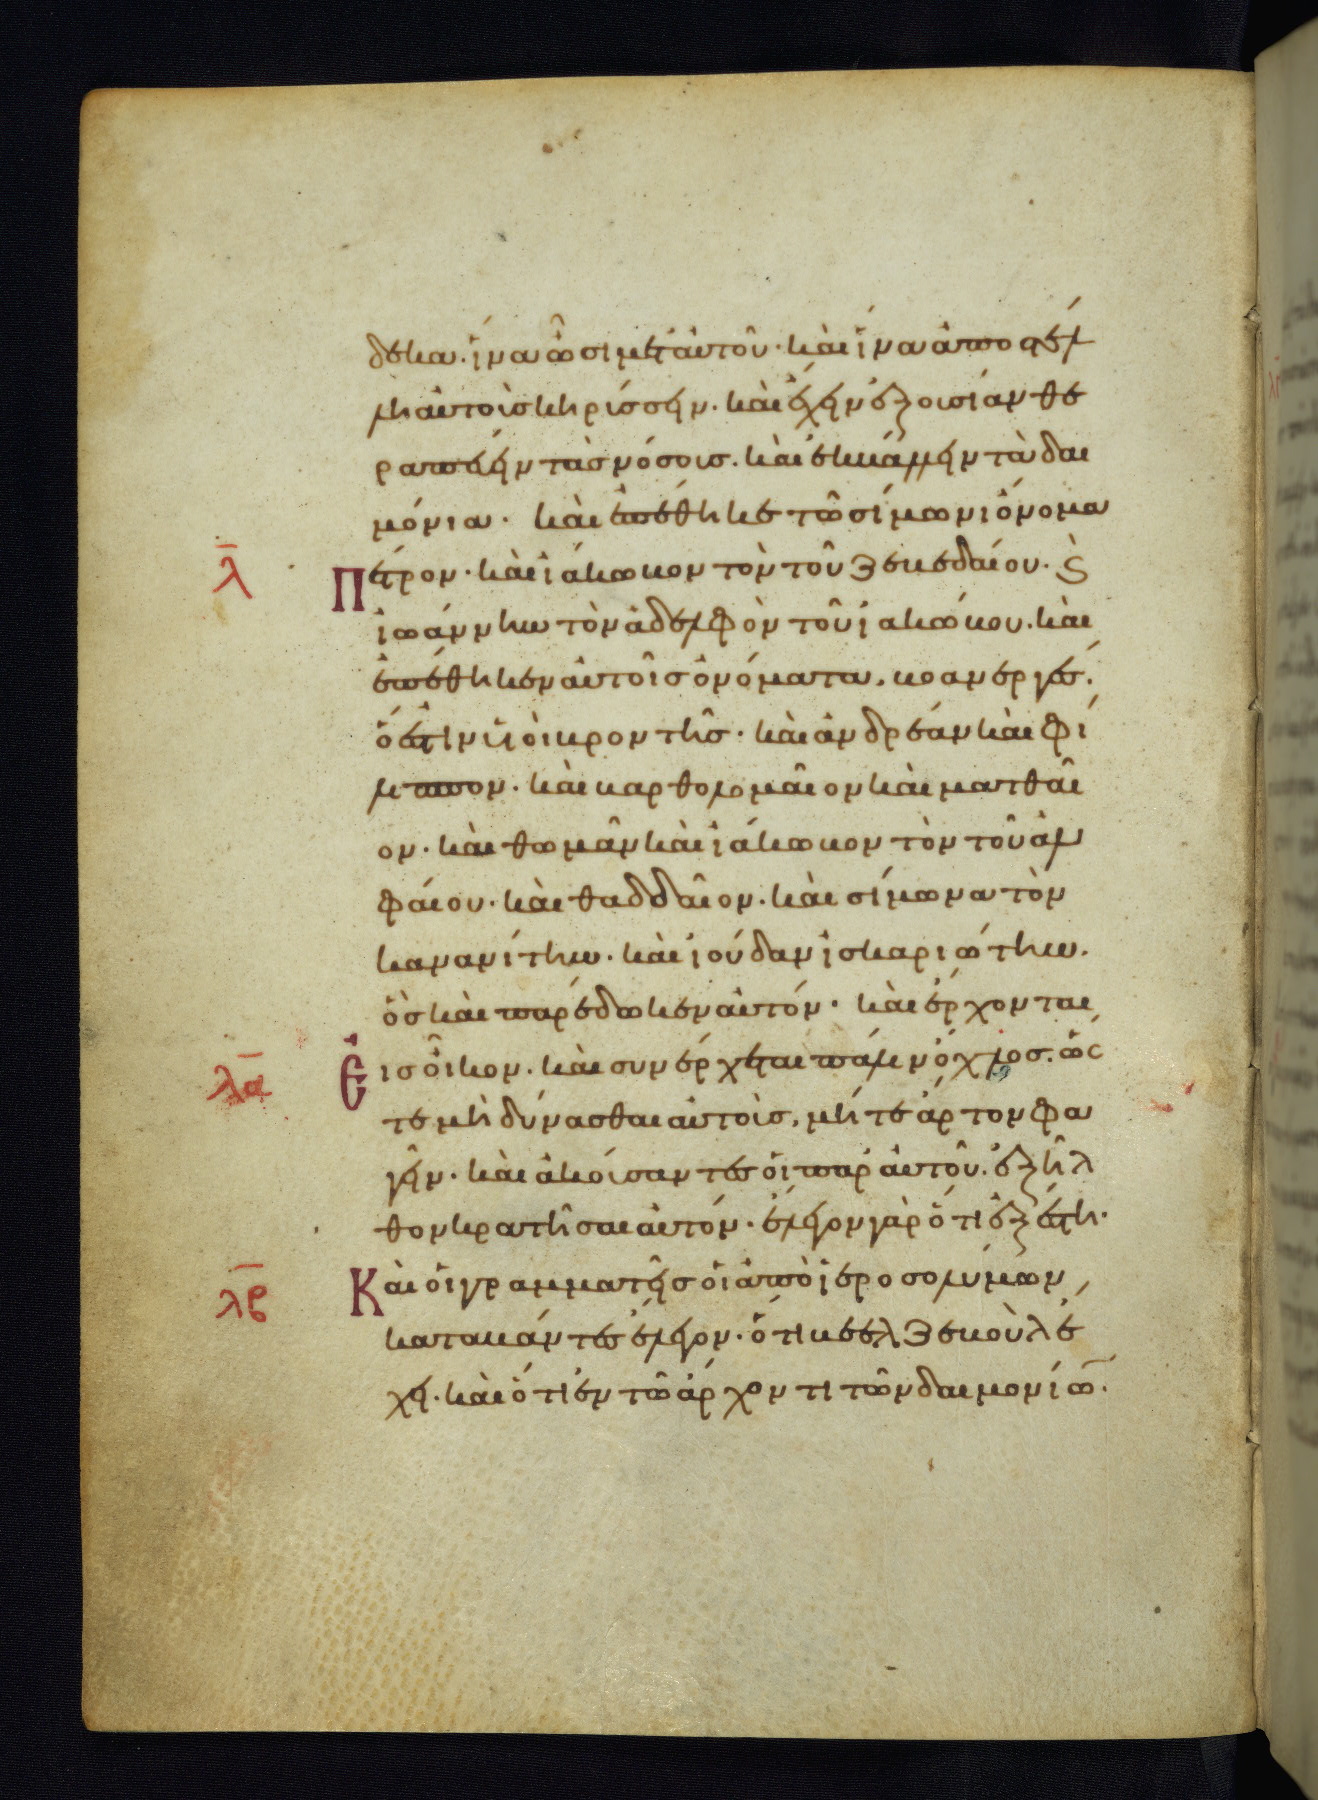 δεκα. ἵνα ὦσι μετ αὐτοῦ· καὶ ἵνα ἀποστέλ
λη αὐτοὺς κηρύσσειν. καὶ ἔχειν ἐξουσίαν θε
ραπεύειν τὰς νόσους. καὶ ἐκβάλλειν τὰ δαι
μόνια· καὶ ἐπέθηκε τῶ σίμωνι ὄνομα
λ Πέτρον· καὶ ἰάκωβον τὸν τοῦ ζεβεδαίου. ϗ
ἰωάννην τὸν ἀδελφὸν τοῦ ἰακώβου. καὶ
ἐπέθηκεν αὐτοῖς ὀνόματα. βοανεργές.
ὅ ἐστιν υἱοὶ βροντῆς· καὶ ἀνδρέαν καὶ φί
λιππον. καὶ βαρθολομαῖον καὶ ματθαῖ
ον. καὶ θωμᾶν καὶ ἰάκωβον τὸν τοῦ ἀλ
φαίου. καὶ θαδδαῖον. καὶ σίμωνα τὸν
κανανίτην. καὶ ἰούδαν ἰσκαριώτην.
ὃς καὶ παρέδωκεν αὐτόν. καὶ ἔρχονται
λα Εἰς οἶκον. καὶ συνέρχεται πάλιν ὄχλος. ὥς
τε μὴ δύνασθαι αὐτοὺς, μήτε ἄρτον φα
γεῖν. καὶ ἀκούσαντες οἱ παρ αὐτοῦ. ἐξῆλ
θον κρατῆσαι αὐτόν. ἔλεγον γὰρ ὅτι ἐξέστη.
λβ Καὶ οἱ γραμματεῖς οἱ ἀπὸ ἱεροσολύμων
καταβάντες ἔλεγον. ὅτι βεελζεβοὺλ ἔ
χει. καὶ ὅτι ἐν τῶ ἄρχοντι τῶν δαιμονίω̅.